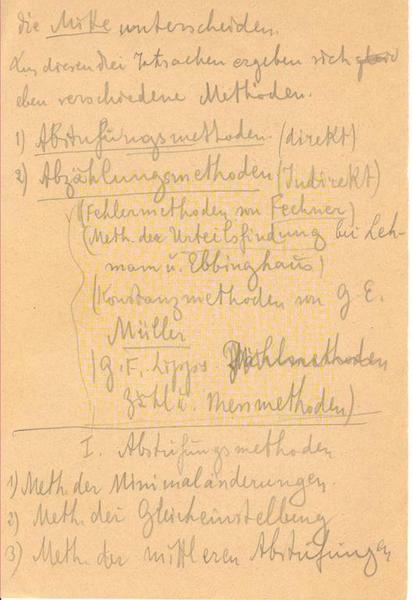 die Mitte unterscheiden.
Aus diesen drei Tatsachen ergeben sich
eben verschiedene Methoden.
1) Abstufungsmethoden. (direkt)
2) Abzählungsmethoden (Indirekt)
(Fehlermethoden von Fechner)
(Meth. der Urteilsfindung bei Leh-
mann u. Ebbinghaus)
(Konstanzmethoden von G. E.
Müller
(G. F. Lipps
Zähl u. Messmethoden)
I. Abstufungsmethoden
1) Meth. der Minimaländerungen.
2) Meth. der Gleicheinstellung
3) Meth. der mittleren Abstufungen